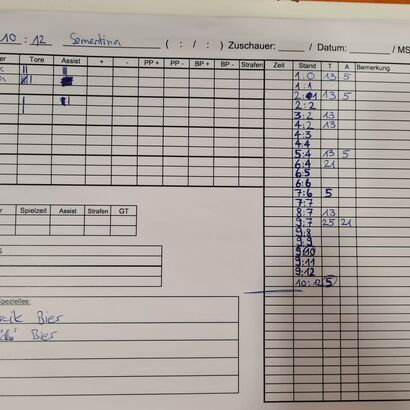 10 : 12 Sementina ( : / : ) Zuschauer: / Datum: / MS
er Tore Assist + - PP + PP - BP + BP - Strafen
Zeit Stand T A Bemerkung
1:0 13 5
1:1
2:1 13 5
2:2
3:2 13
4:2 13
4:3
4:4
5:4 13 5
6:4 21
6:5
6:6
7:6 5
7:7
8:7 13
9:7 25 21
9:8
9:9
9:10
9:11
9:12
10:12 5
Spielzeit Assist Strafen GT
S
Spezielles:
Bier
Bier